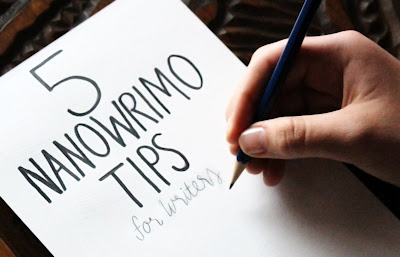 5
NANOWRIMO
TIPS
for writers